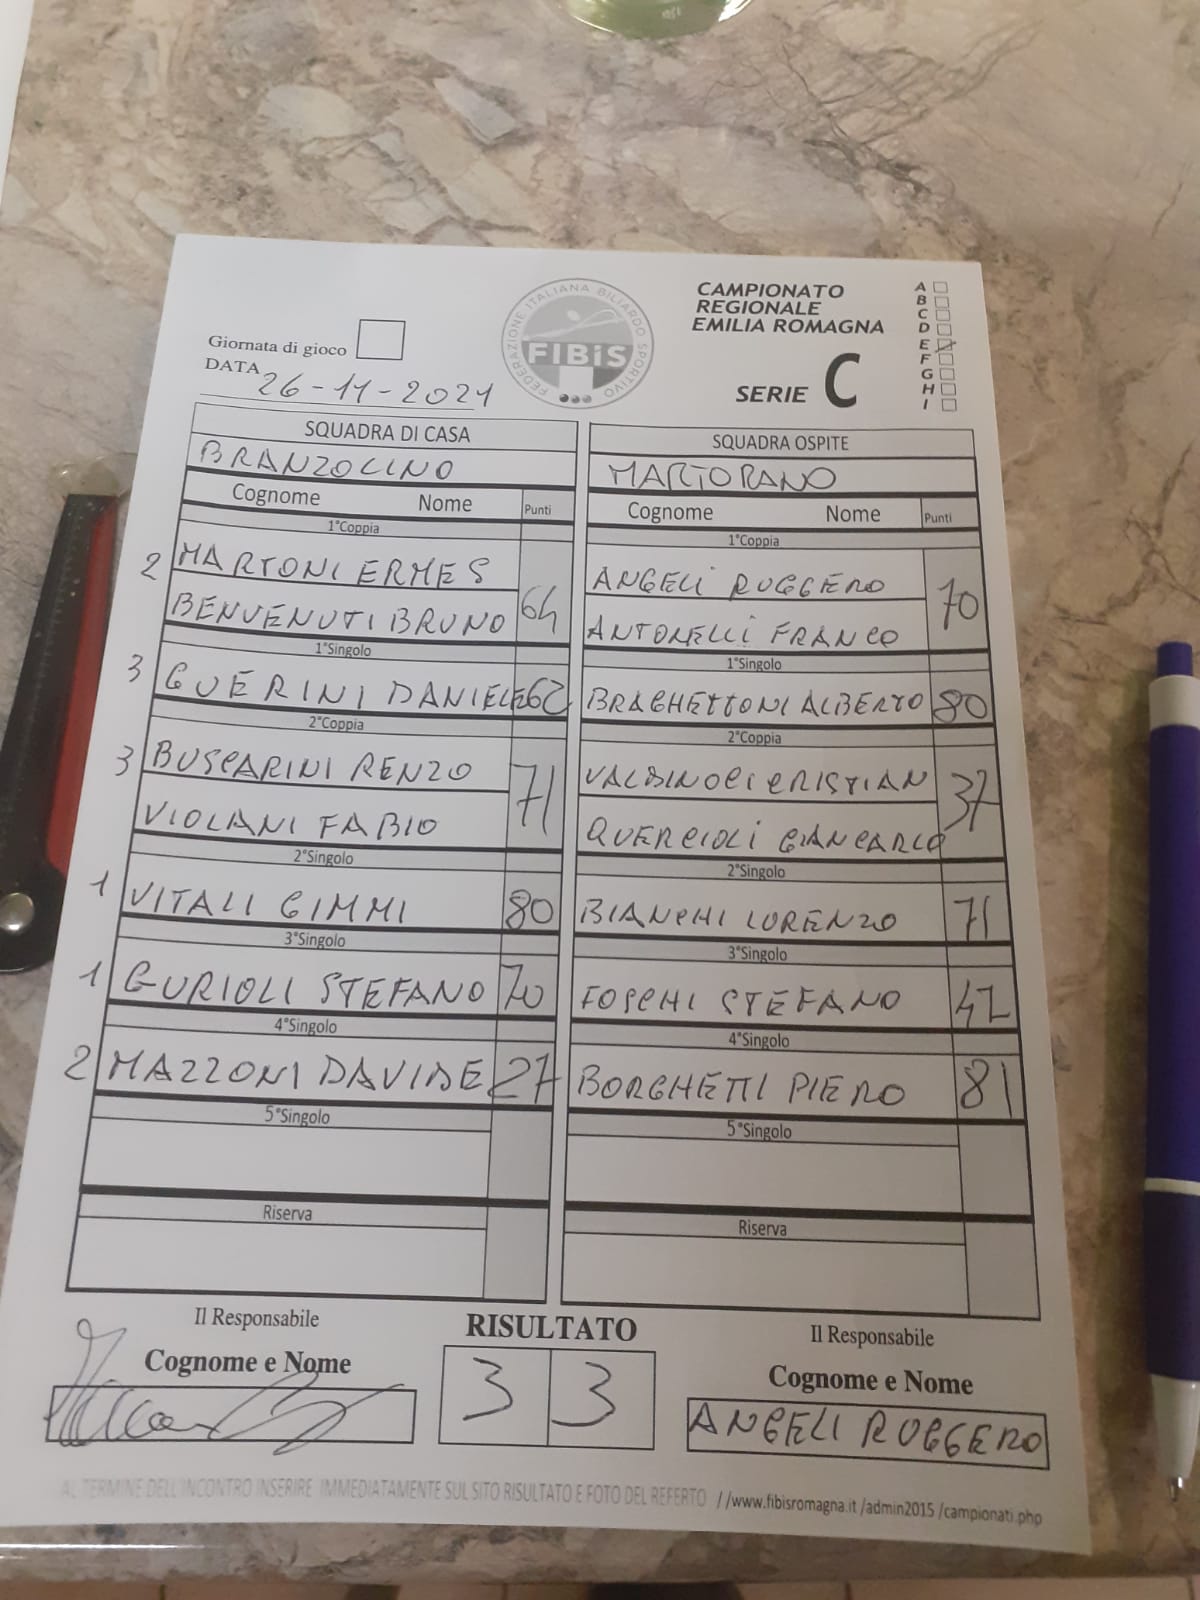 FEDERAZIONE ITALIANA BILIARDO SPORTIVO
FIBiS
CAMPIONATO
REGIONALE
EMILIA ROMAGNA
SERIE C
A
B
C
D
E
F
G
H
I
Giornata di gioco
DATA 26-11-2021
SQUADRA DI CASA
BRANZOLINO
Cognome Nome Punti
1°Coppia
2 MARTONI ERMES
BENVENUTI BRUNO 64
1°Singolo
3 GUERINI DANIELE 62
2°Coppia
3 BUSCARINI RENZO
VIOLANI FABIO 71
2°Singolo
1 VITALI GIMMI 80
3°Singolo
1 GURIOLI STEFANO 70
4°Singolo
2 MAZZONI DAVIDE 27
5°Singolo
Riserva
SQUADRA OSPITE
MARTORANO
Cognome Nome Punti
1°Coppia
ANGELI RUGGERO
ANTONELLI FRANCO 70
1°Singolo
BRAGHETTONI ALBERTO 80
2°Coppia
VALBINOCI CRISTIAN
QUERCIOLI GIANCARLO 37
2°Singolo
BIANCHI LORENZO 71
3°Singolo
FOSCHI STEFANO 42
4°Singolo
BORGHETTI PIERO 81
5°Singolo
Riserva
Il Responsabile
Cognome e Nome
RISULTATO
3 3
Il Responsabile
Cognome e Nome
ANGELI RUGGERO
AL TERMINE DELL'INCONTRO INSERIRE IMMEDIATAMENTE SUL SITO RISULTATO E FOTO DEL REFERTO //www.fibisromagna.it /admin2015 /campionati.php